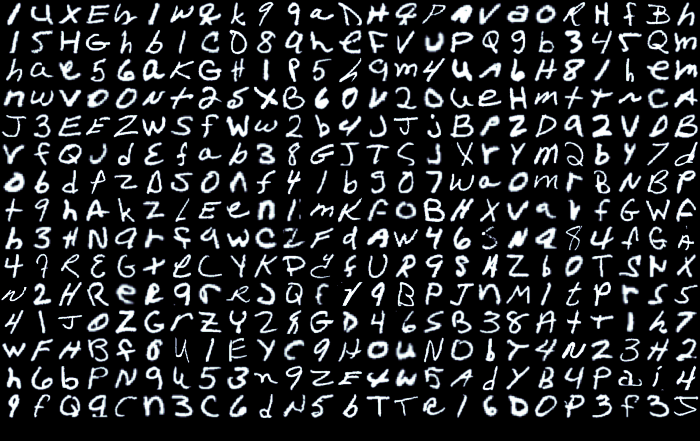 1 U X E h 1 W & k 9 9 a D H 4 P A V a O R H f B h
1 5 H G h b 1 C D 8 q h e F V U P Q 9 b 3 4 5 Q m
h a e 5 6 a K G H 1 P 5 h q m 4 U A 6 H 8 1 h e m
n w V O O N t 2 5 X B 6 O V 2 D U e H m t r n C A
J 3 E E Z W S f W w 2 b 4 J J j B P Z D 9 2 V D B
r f Q J d E f a b 3 8 G J T S J X r Y m 2 b Y 7 d
0 6 d f Z D 5 0 n f 4 1 b 9 0 7 W a 0 m r B N B P
t 9 h A k Z L E e n 1 m K F O B H X V a r f G W F
h 3 H N 9 r f 9 W C Z F d A W 4 6 S N 9 8 4 f G A
4 7 R E G t e C Y K P E f U R 9 S A Z b 0 T S N X
N 2 H R e R 9 r R J Q F Y 9 B P J n M 1 t P r S 5
4 1 J 0 Z G r Z Y 2 8 G D 4 6 S B 3 8 A t t 1 h 7
W F H B f 8 U 1 E Y C 9 H O U N D b Y 4 N 2 3 H 2
h 6 b P N 9 U 5 3 n 9 Z E 4 W 5 A d Y B 4 P a i 4
9 f Q 9 C n 3 C 6 d N 5 b T T R 1 6 D O P 3 f 3 5